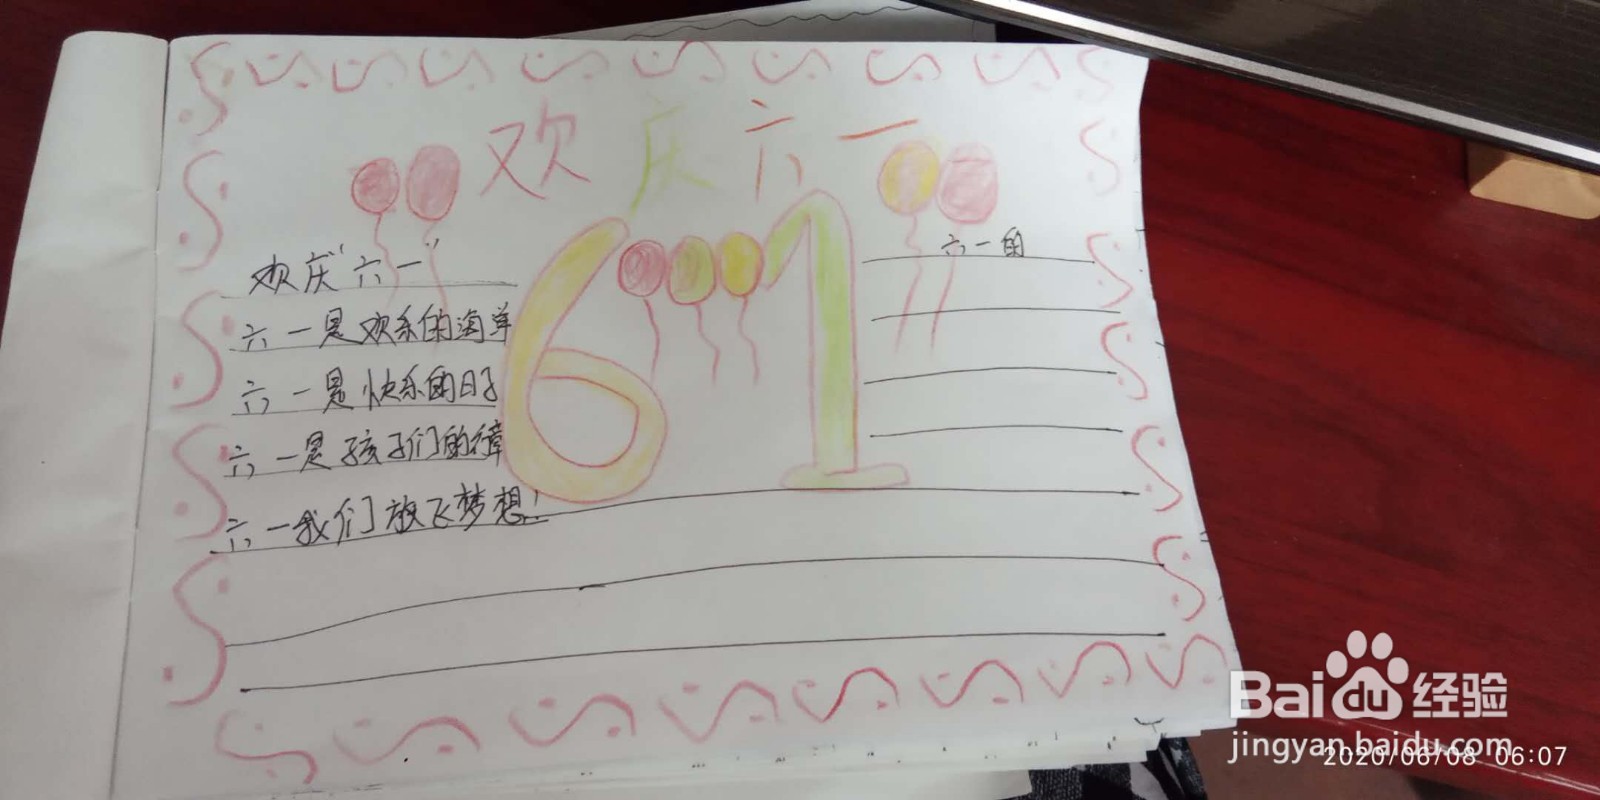 欢庆六一
欢庆“六一”
六一是欢乐的海洋
六一是快乐的日子
六一是孩子们的
六一我们放飞梦想!
61
六一的
Baidu经验
jingyan.baidu.com
2020/06/08 06:07